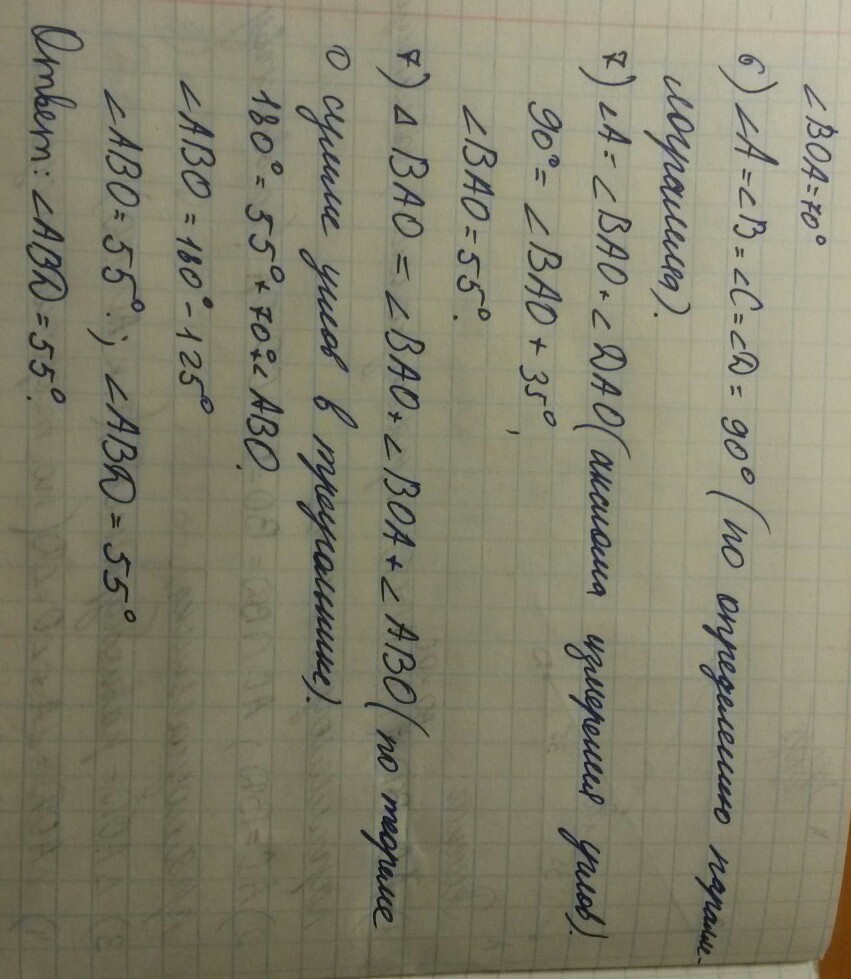 ∠BOA = 70°
6) ∠A = ∠B = ∠C = ∠D = 90° (по определению паралле-
лограмма).
7) ∠A = ∠BAO + ∠DAO (аксиома измерения углов).
90° = ∠BAO + 35°,
∠BAO = 55°.
7) △ BAO = ∠BAO + ∠BOA + ∠ABO (по теореме
о сумме углов в треугольнике).
180° = 55° + 70° + ∠ABO.
∠ABO = 180° - 125°
∠ABO = 55°.; ∠ABD = 55°
Ответ: ∠ABD = 55°.